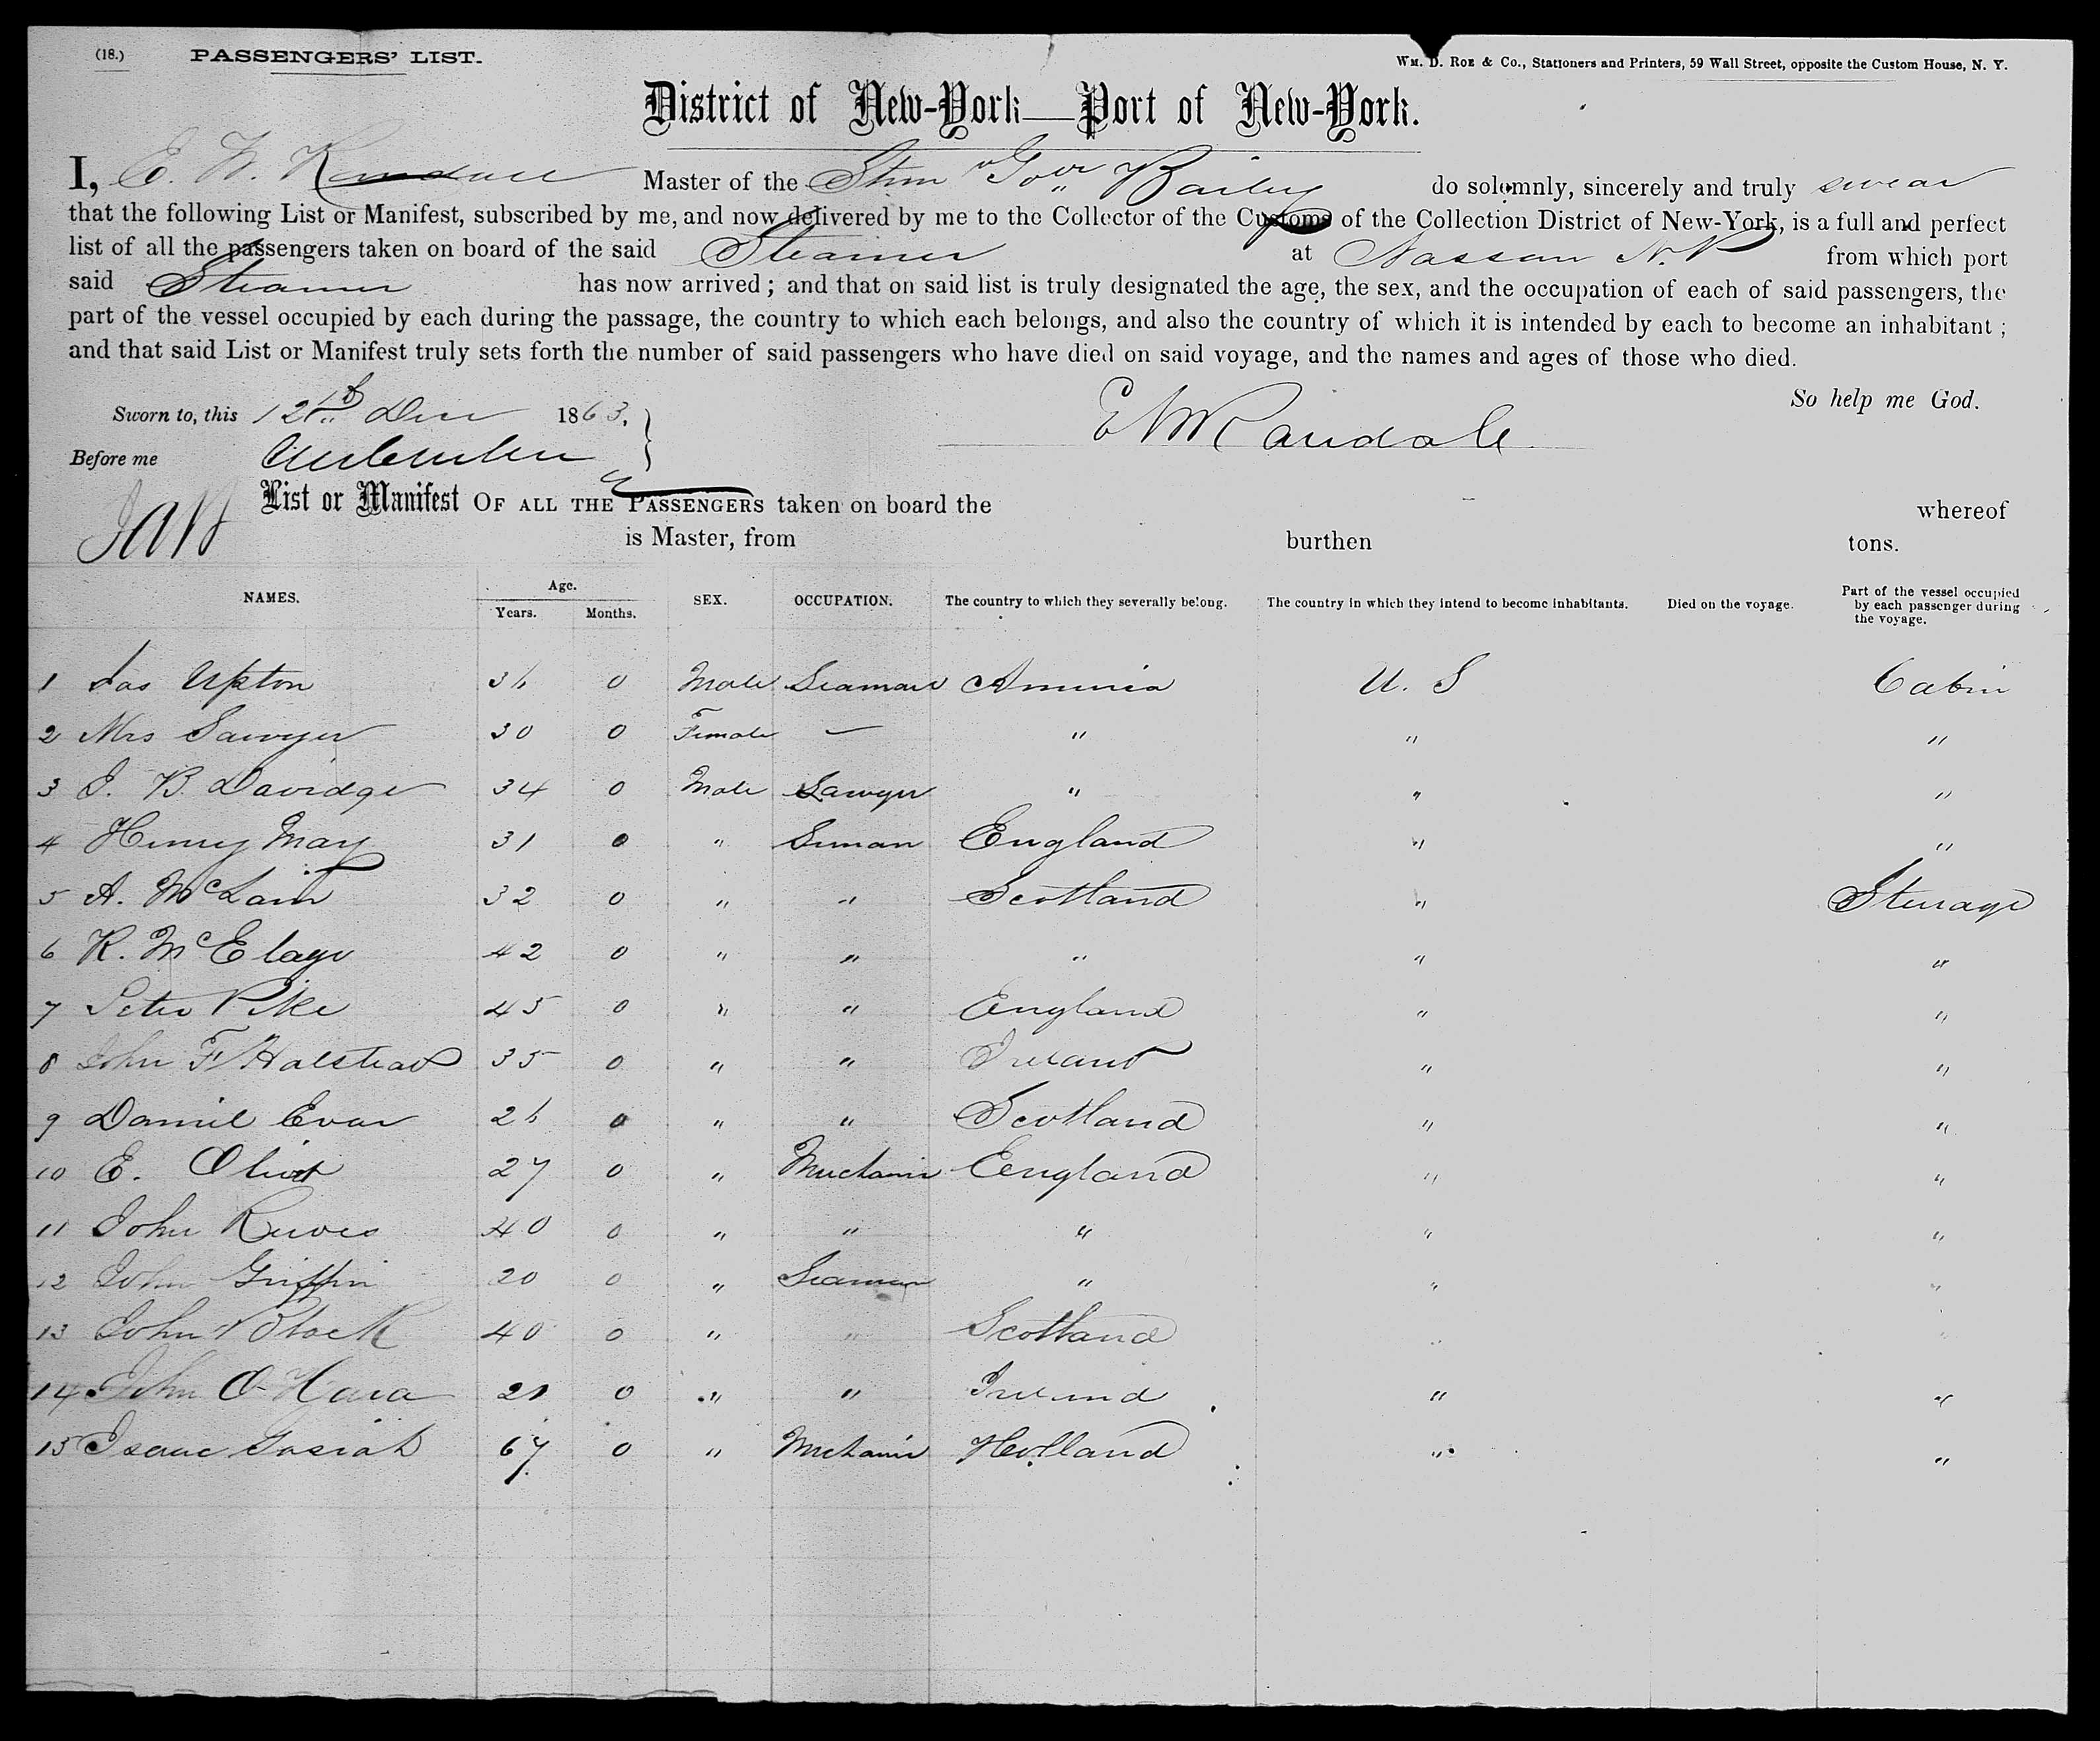 (18.) PASSENGERS' LIST. WM. D. ROE & CO., Stationers and Printers, 59 Wall Street, opposite the Custom House, N. Y.
District of New-York—Port of New-York.
I, E. W. Randall Master of the Stmr "Govr Bailey do solemnly, sincerely and truly swear
that the following List or Manifest, subscribed by me, and now delivered by me to the Collector of the Customs of the Collection District of New-York, is a full and perfect
list of all the passengers taken on board of the said Steamer at Nassau N.P from which port
said Steamer has now arrived; and that on said list is truly designated the age, the sex, and the occupation of each of said passengers, the
part of the vessel occupied by each during the passage, the country to which each belongs, and also the country of which it is intended by each to become an inhabitant;
and that said List or Manifest truly sets forth the number of said passengers who have died on said voyage, and the names and ages of those who died.
So help me God.
Sworn to, this 12th Dec 1863.
E W Randall
Before me
List or Manifest OF ALL THE PASSENGERS taken on board the whereof
is Master, from burthen tons.
NAMES. Age. Years. Months. SEX. OCCUPATION. The country to which they severally belong. The country in which they intend to become inhabitants. Died on the voyage. Part of the vessel occupied by each passenger during the voyage.
1 Jas Upton 36 0 Male Seaman America U. S Cabin
2 Mrs Sawyer 30 0 Female — " " "
3 J. B. Davidge 34 0 Male Lawyer " " "
4 Henry May 31 0 " Seman England " "
5 A. McLain 32 0 " " Scotland " Sterrage
6 R. McElage 42 0 " " " " "
7 Peter Pike 45 0 " " England " "
8 John F Halstead 35 0 " " Ireland " "
9 Daniel Evar 26 0 " " Scotland " "
10 E. 27 0 " Mechanic England " "
11 John Reeves 40 0 " " " " "
12 John Griffin 20 0 " Seaman " " "
13 John Black 40 0 " " Scotland " "
14 John O Hara 21 0 " " Ireland " "
15 Isaac Josiah 67 0 " Mechanic Holland " "